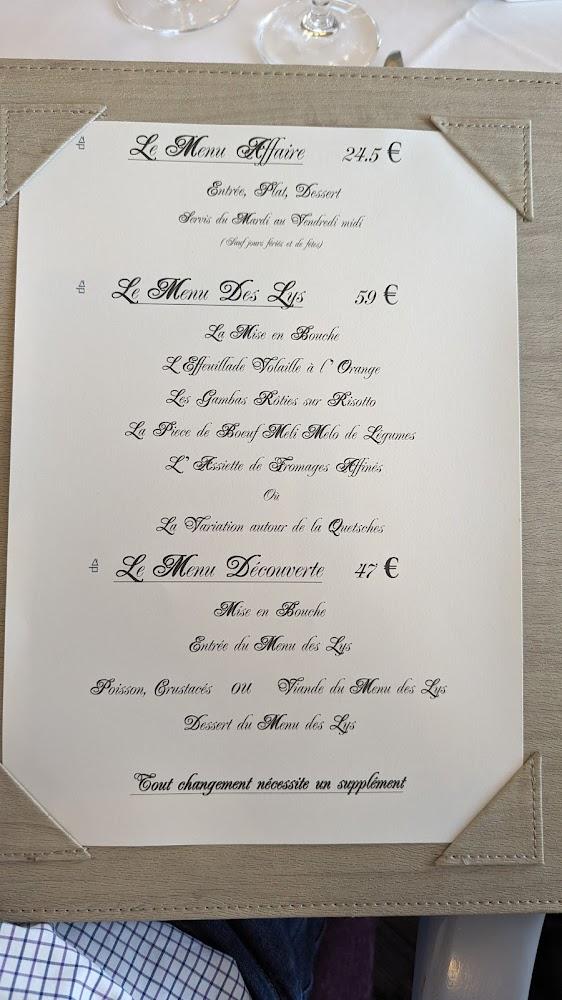 Le Menu Affaire 24.5 €
Entrée, Plat, Dessert
Servis du Mardi au Vendredi midi
(Sauf jours fériés et de fêtes)
Le Menu Des Lys 59 €
La Mise en Bouche
L'Effeuillade Volaille à l' Orange
Les Gambas Rôties sur Risotto
La Pièce de Boeuf Meli Melo de Légumes
L' Assiette de Fromages Affinés
Ou
La Variation autour de la Quetsches
Le Menu Découverte 47 €
Mise en Bouche
Entrée du Menu des Lys
Poisson, Crustacés ou Viande du Menu des Lys
Dessert du Menu des Lys
Tout changement nécessite un supplément